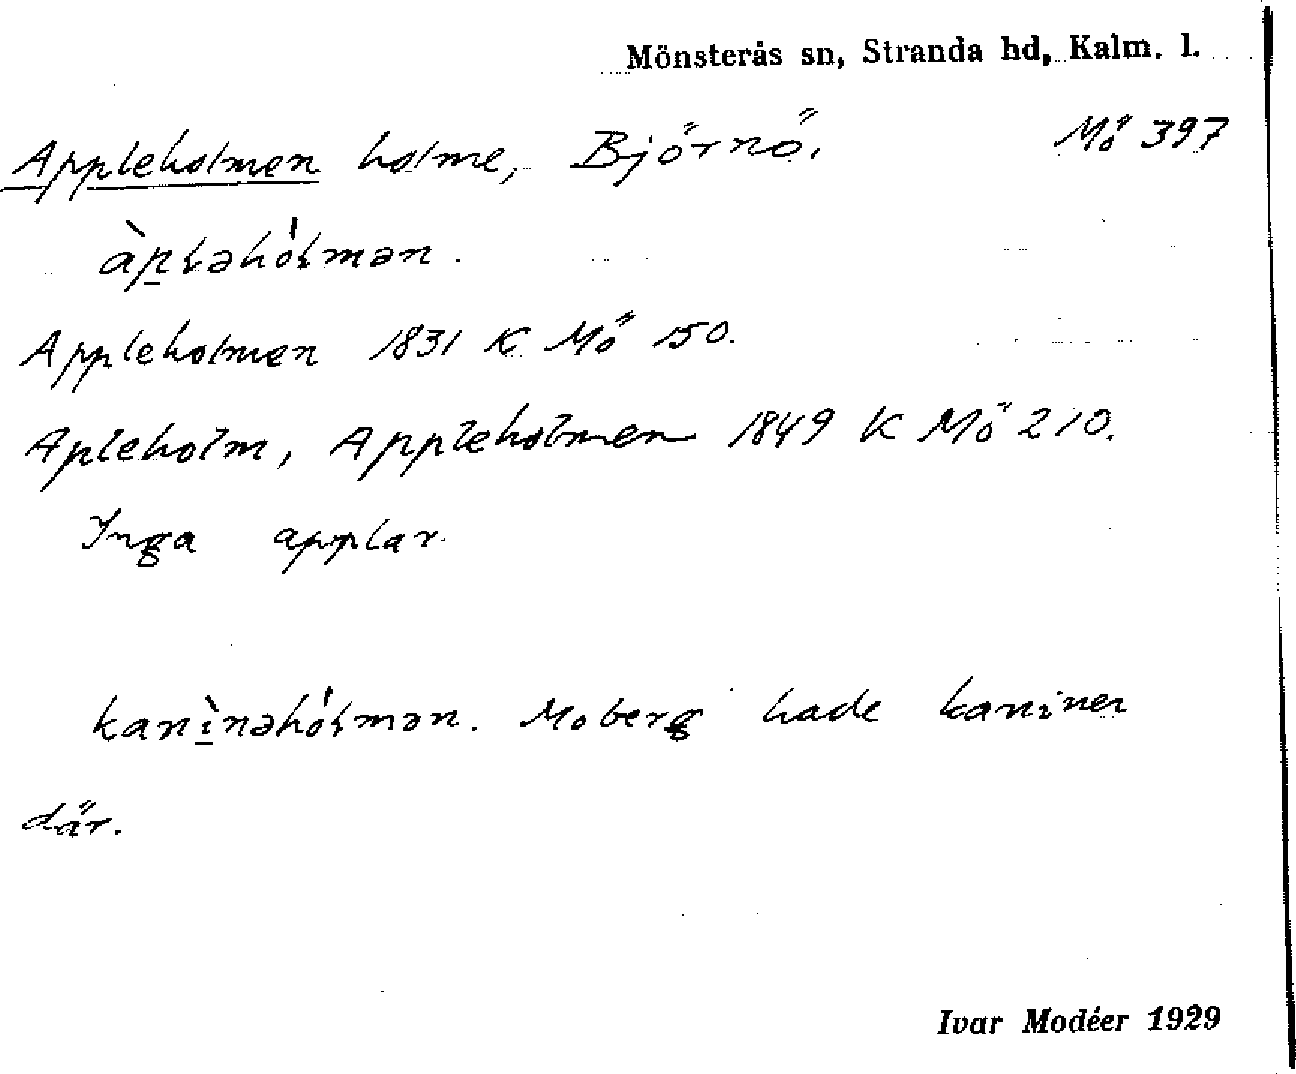 Mönsterås sn, Stranda hd, Kalm. l.
Appleholmen holme, Björnö. Mö 397
àp̲ɬəhóɬmən.
Appleholmen 1831 K Mö 150.
Apleholm, Appleholmen 1849 K Mö 210.
Inga applar.
kanı̲̀nəhóɬmən. Moberg hade kaniner
där.
Ivar Modéer 1929